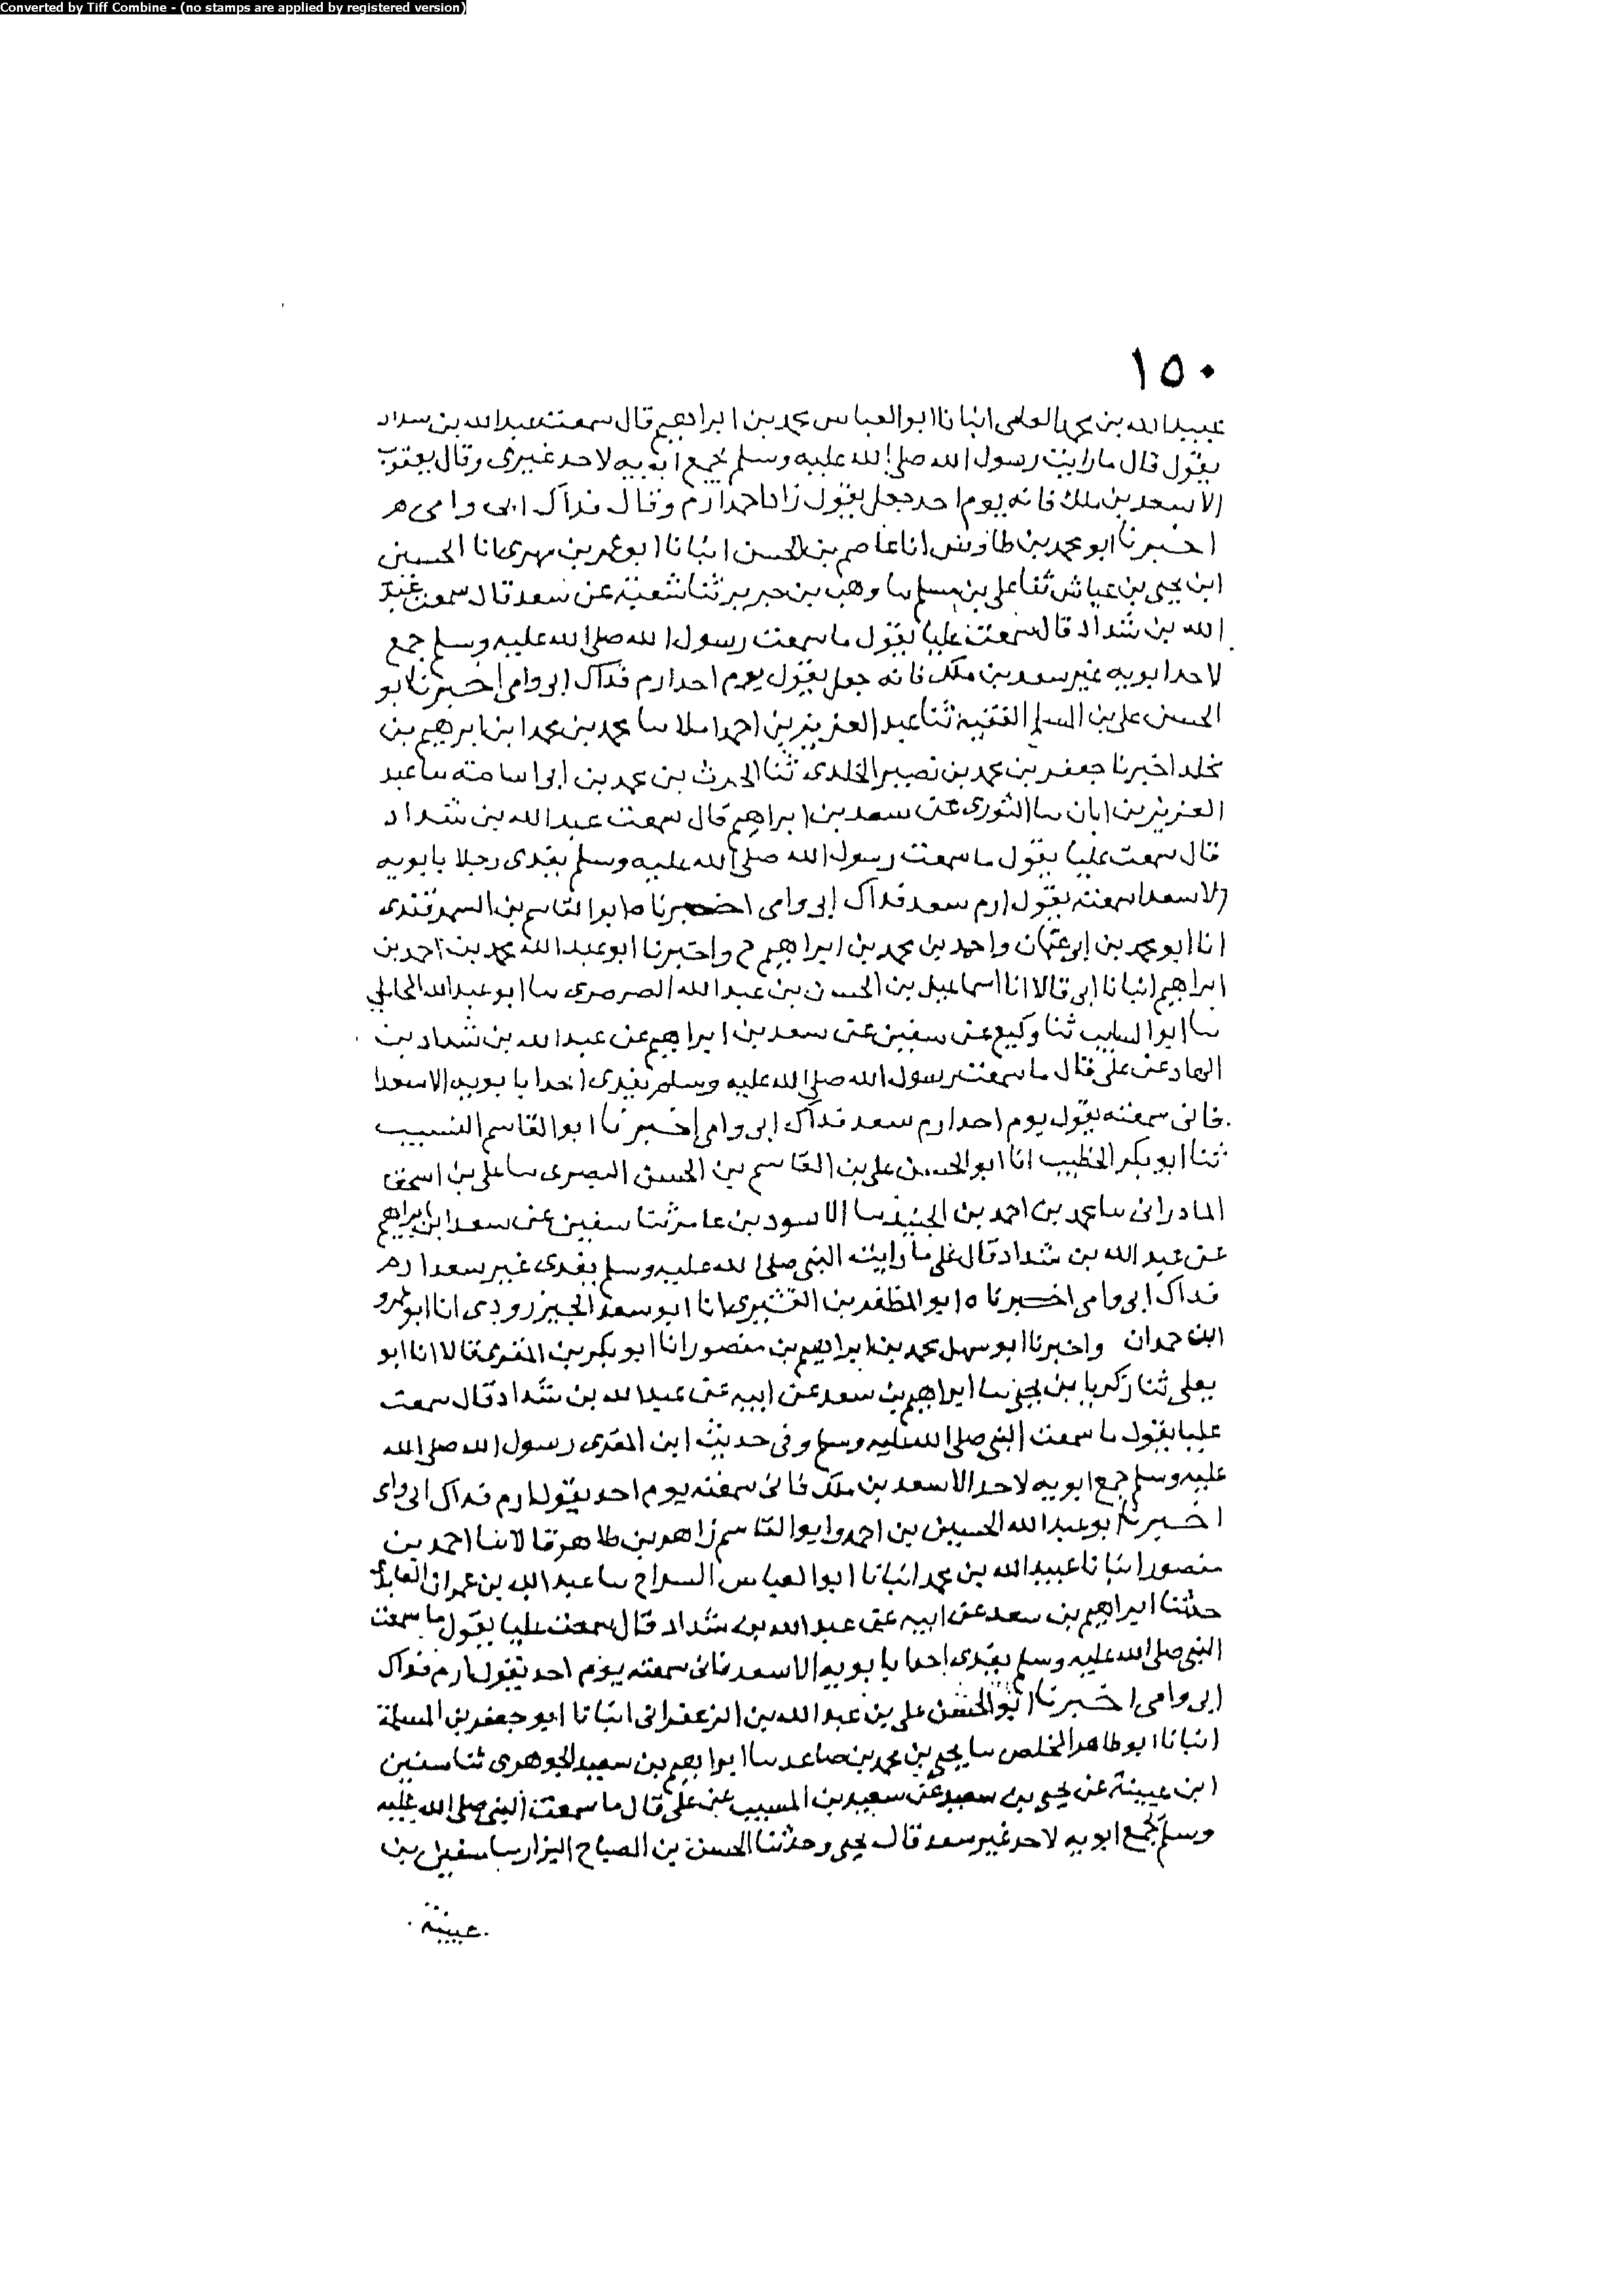 Converted by Tiff Combine - (no stamps are applied by registered version)
١٥٠
عبيد الله بن محمد العلمى انبانا ابو العباس محمد بن ابراهيم قال سمعت عبد الله بن سداد
يقول قال ما رايت رسول الله صلى الله عليه وسلم يجمع ابويه لاحد غيرى وقال يعقوب
الا سعد بن ملك فانه يوم احد جعل يقول زادا احمد ارم وقال فداك ابى وامى ه
اخبرنا ابو محمد بن طاوس انا عاصم بن الحسن انبانا ابو عمر بن مهدى انا الحسين
ابن يحيى بن عياش ثنا على بن مسلم سا وهب بن جرير ثنا شعبة عن سعد قال سمعت عبد
الله بن شداد قال سمعت عليا يقول ما سمعت رسول الله صلى الله عليه وسلم جمع
لاحد ابويه غير سعد بن ملك فانه جعل يقول يوم احد ارم فداك ابى وامى اخبرنا ابو
الحسن على بن المسلم الفقيه ثنا عبد العزيز بن احمد املا سا محمد بن محمد ابن ابرهيم بن
مخلد اخبرنا جعفر بن محمد بن نصير الخلدى ثنا الحرث بن محمد بن ابى اسامة سا عبد
العزيز بن ابان سا الثورى عن سعد بن ابراهيم قال سمعت عبد الله بن شداد
قال سمعت عليا يقول ما سمعت رسول الله صلى الله عليه وسلم يفدى رجلا بابويه
الا سعدا سمعته يقول ارم سعد فداك ابى وامى اخبرناه ابو القاسم بن السمرقندى
انا ابو محمد بن ابى عثمان واحمد بن محمد بن ابراهيم ح واخبرنا ابو عبد الله محمد بن احمد بن
ابراهيم انبانا ابى قالا انا اسماعيل بن الحسن بن عبد الله الصرصرى سا ابو عبد الله المحاملى
سا ابو السايب ثنا وكيع عن سفين عن سعد بن ابراهيم عن عبد الله بن شداد بن
الهاد عن على قال ما سمعت رسول الله صلى الله عليه وسلم يفدى احدا بابويه الا سعدا
فانى سمعته يقول يوم احد ارم سعد فداك ابى وامى اخبرنا ابو القاسم النسيب
ثنا ابو بكر الخطيب انا ابو الحسين على بن القاسم بن الحسن البصرى سا على بن اسحق
المادرانى سا محمد بن احمد بن الجنيد سا الاسود بن عامر ثنا سفين عن سعد ابن ابراهيم
عن عبد الله بن شداد قال على ما رايت النبى صلى الله عليه وسلم يفدى غير سعد ارم
فداك ابى وامى اخبرناه ابو المظفر بن القشيرى انا ابو سعد الجنزرودى انا ابو عمرو
ابن حمدان واخبرنا ابو سهل محمد بن ابراهيم بن منصور انا ابو بكر بن المقرى قالا انا ابو
يعلى ثنا زكريا بن يحيى سا ابراهيم بن سعد عن ابيه عن عبد الله بن شداد قال سمعت
عليا يقول ما سمعت النبى صلى الله عليه وسلم وفى حديث ابن المقرى رسول الله صلى الله
عليه وسلم جمع ابويه لاحد الا سعد بن ملك فانى سمعته يوم احد يقول ارم فداك ابى وامى
اخبرنا ابو عبد الله الحسين بن احمد وابو القاسم زاهر بن طاهر قالا ثنا احمد بن
منصور انبانا عبيد الله بن محمد انبانا ابو العباس السراج سا عبد الله بن عمران العابدى
حدثنا ابراهيم بن سعد عن ابيه عن عبد الله بن شداد قال سمعت عليا يقول ما سمعت
النبى صلى الله عليه وسلم يفدى احدا بابويه الا سعد فانى سمعته يوم احد يقول ارم فداك
ابى وامى اخبرنا ابو الحسن على بن عبد الله بن الزعفرانى انبانا ابو جعفر بن المسلمة
انبانا ابو طاهر المخلص سا يحيى بن محمد بن صاعد سا ابراهيم بن سعيد الجوهرى ثنا سفين
ابن عيينة عن يحيى بن سعيد عن سعيد بن المسيب عن على قال ما سمعت النبى صلى الله عليه
وسلم يجمع ابويه لاحد غير سعد قال يحيى وحدثنا الحسن بن الصباح البزار سا سفين بن
عيينة